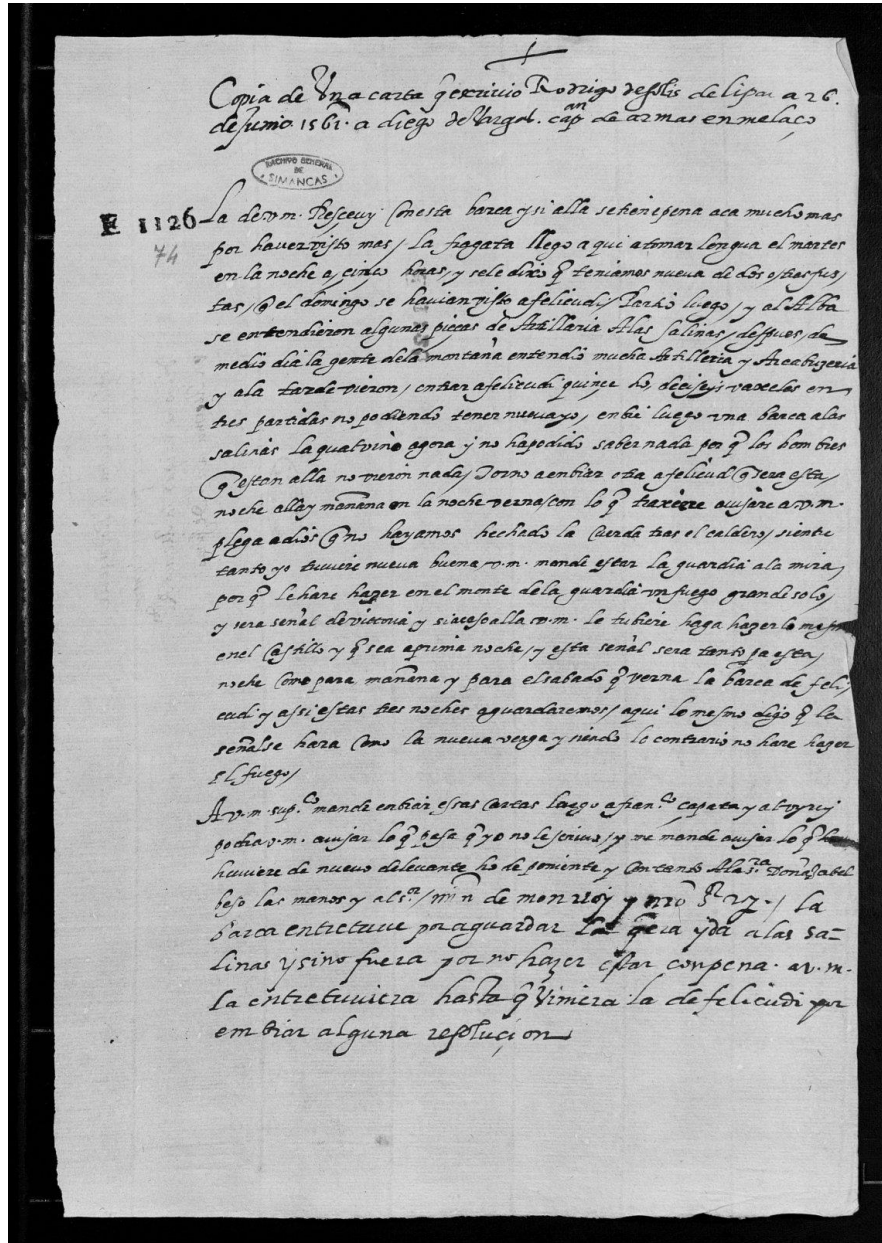 Copia de Una carta q̃ escrivio Rodrigo de solis de lipar a 26.
de Junio. 1561. a diego de Vargas. capan de armas en melaço
ARCHIVO GENERAL
DE
SIMANCAS
E 1126
74
La de v.m. Rescevy Con esta barca y si alla se tiene pena aca mucho mas
por haver visto mas / la fragata llego a qui a tomar lengua el martes
en la noche a cinco horas, y se le dixo q̃ teniamos nueva de dos o tres fus,
tas, q̃ el domingo se havian visto a felicudi / Partio luego, y al Alba
se entendieron algunas pieças de Artillaria A las salinas, despues, de
medio dia la gente de la montaña entendio mucha Artilleria y Arcabuzeria
y a la tarde vieron, entrar a felicudi quinçe ho, deciseys vaxeles en
tres partidas no podiendo tener nueva yo, enbie luego una barca a las
salinas la qual vino agora y no ha podido saber nada por q̃ los hombres
q̃ estan alla no vieron nada, Torno a enbiar otra a felicud q̃ sera esta,
noche alla y mañana en la noche verna, con lo q̃ traxere avisare a v.m.
plega a dios q̃ no hayamos hechado la Cuerda tras el caldero, siente
tanto yo tuviere nueva buena v.m. mande estar la guardia a la mira,
por q̃ le hare hazer en el monte de la guardia un fuego grande solo,
y sera señal de vitoria y si acaso alla v.m. le tubiere haga hazer lo mesmo
en el Castillo y q̃ sea a prima noche, y esta señal sera tanto pa esta,
noche Como para mañana y para el sabado q̃ verna la barca de feli,
cudi y assi estas tres noches aguardaremos, aqui lo mesmo digo q̃ la
señal se hara Como la nueva venga y siendo lo contrario no hare hazer
el fuego,
A v.m. supco mande enbiar essas Cartas luego a franco capata y al vyrey
podra v.m. avisar lo q̃ pasa q̃ yo no le scrivo, y me mande avisar lo q̃
huviere de nuevo de levante ho de poniente y Con tanto A la s.ra Doña ysabel
beso las manos y al s.or / min de monrroy y nro s.r / la
barca entretuve por aguardar la q̃ era yda a las sa-
linas y sino fuera por no hazer estar con pena. a v.m.
la entretuviera hasta q̃ viniera la de felicudi por
embiar alguna resoluçion